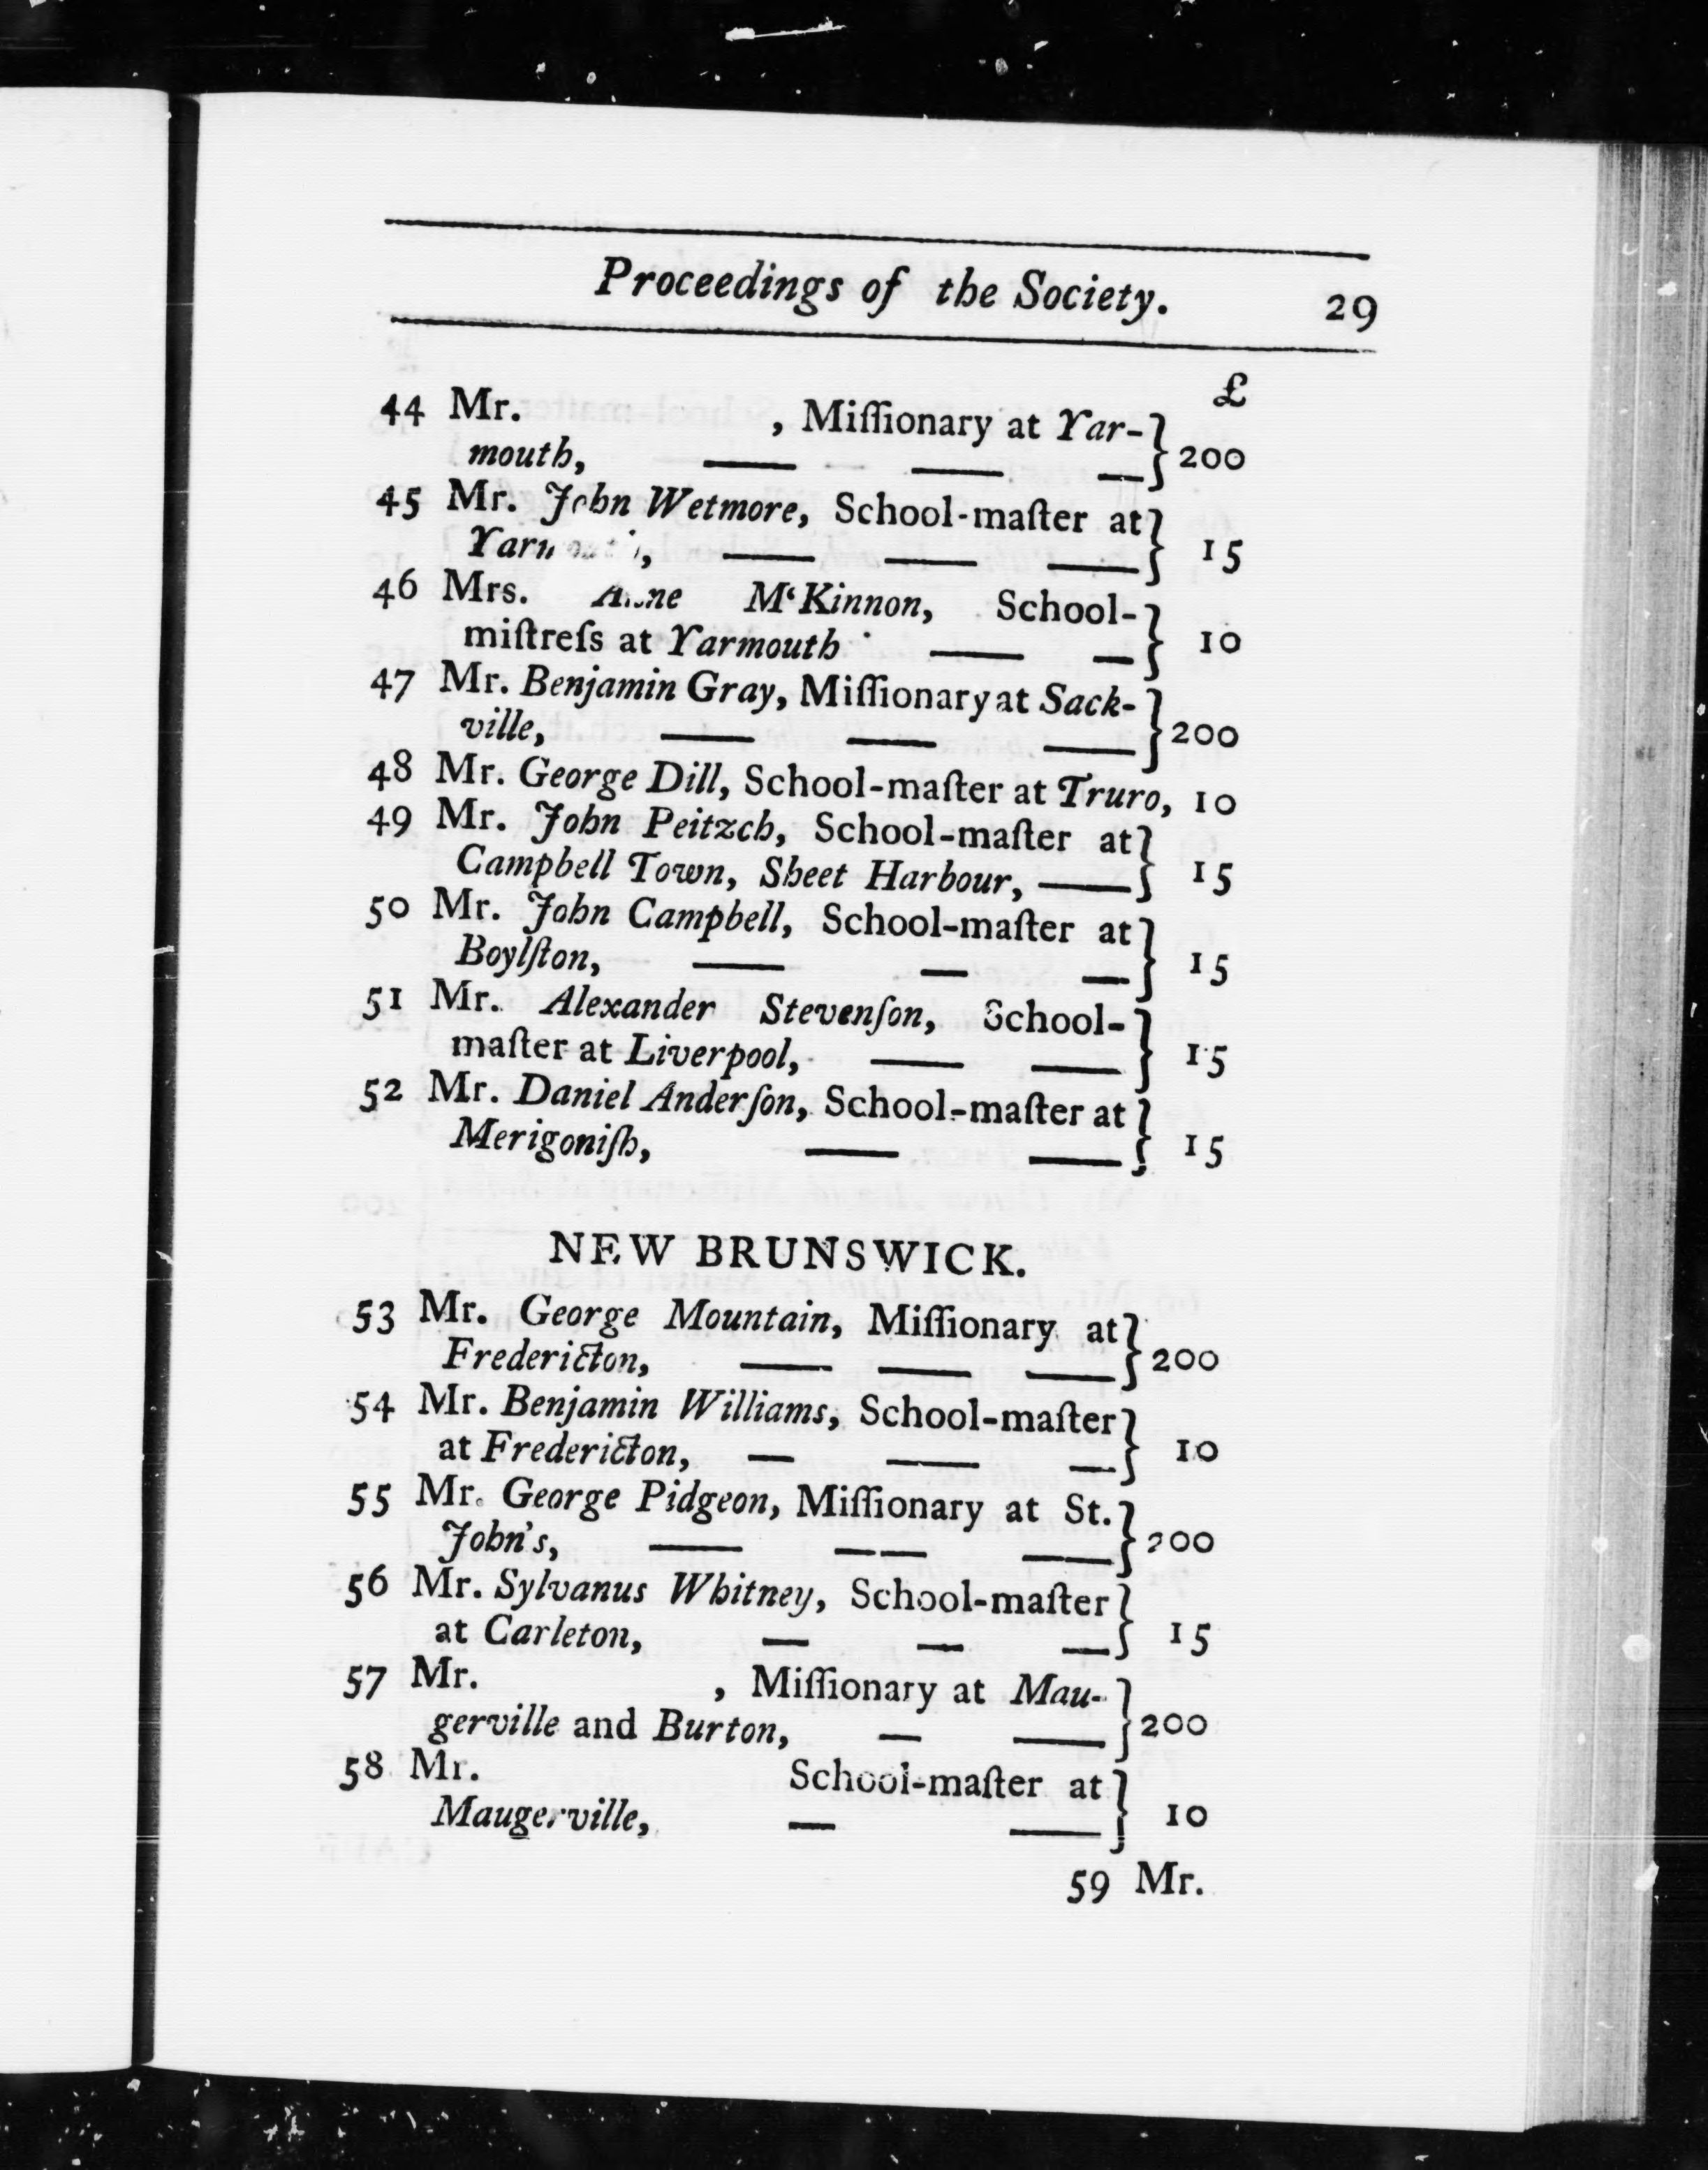 Proceedings of the Society. 29
£
44 Mr. , Miſſionary at Yar-
mouth, — — — 200
45 Mr. John Wetmore, School-maſter at
— — — 15
46 Mrs. Anne M‘Kinnon, School-
miſtreſs at Yarmouth — — 10
47 Mr. Benjamin Gray, Miſſionary at Sack-
ville, — — — 200
48 Mr. George Dill, School-maſter at Truro, 10
49 Mr. John Peitzch, School-maſter at
Campbell Town, Sheet Harbour, — 15
50 Mr. John Campbell, School-maſter at
Boylſton, — — — 15
51 Mr. Alexander Stevenſon, School-
maſter at Liverpool, — — 15
52 Mr. Daniel Anderſon, School-maſter at
Merigoniſh, — — 15
NEW BRUNSWICK.
53 Mr. George Mountain, Miſſionary at
Fredericton, — — — 200
54 Mr. Benjamin Williams, School-maſter
at Fredericton, — — — 10
55 Mr. George Pidgeon, Miſſionary at St.
John's, — — — — 200
56 Mr. Sylvanus Whitney, School-maſter
at Carleton, — — — 15
57 Mr. , Miſſionary at Mau-
gerville and Burton, — — 200
58 Mr. School-maſter at
Maugerville, — — 10
59 Mr.